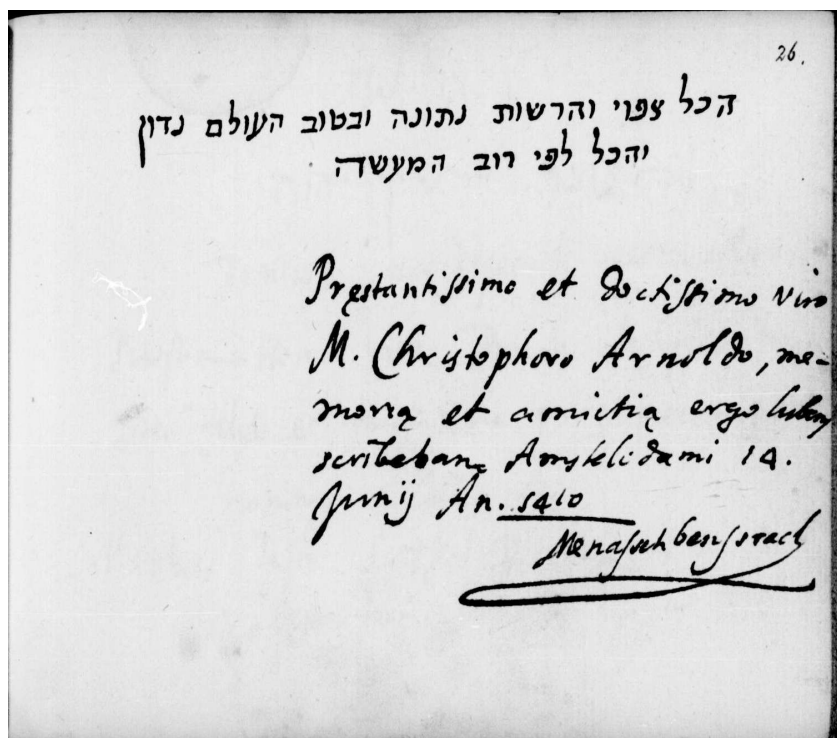 26.
הכל צפוי והרשות נתונה ובטוב העולם נדון
והכל לפי רוב המעשה
Pręstantissimo et doctissimo viro
M. Christophoro Arnoldo, me-
morię et amicitię ergo lubens
scribebam Amstelodami 14.
Junij An. 5410
Menasseh ben Israel